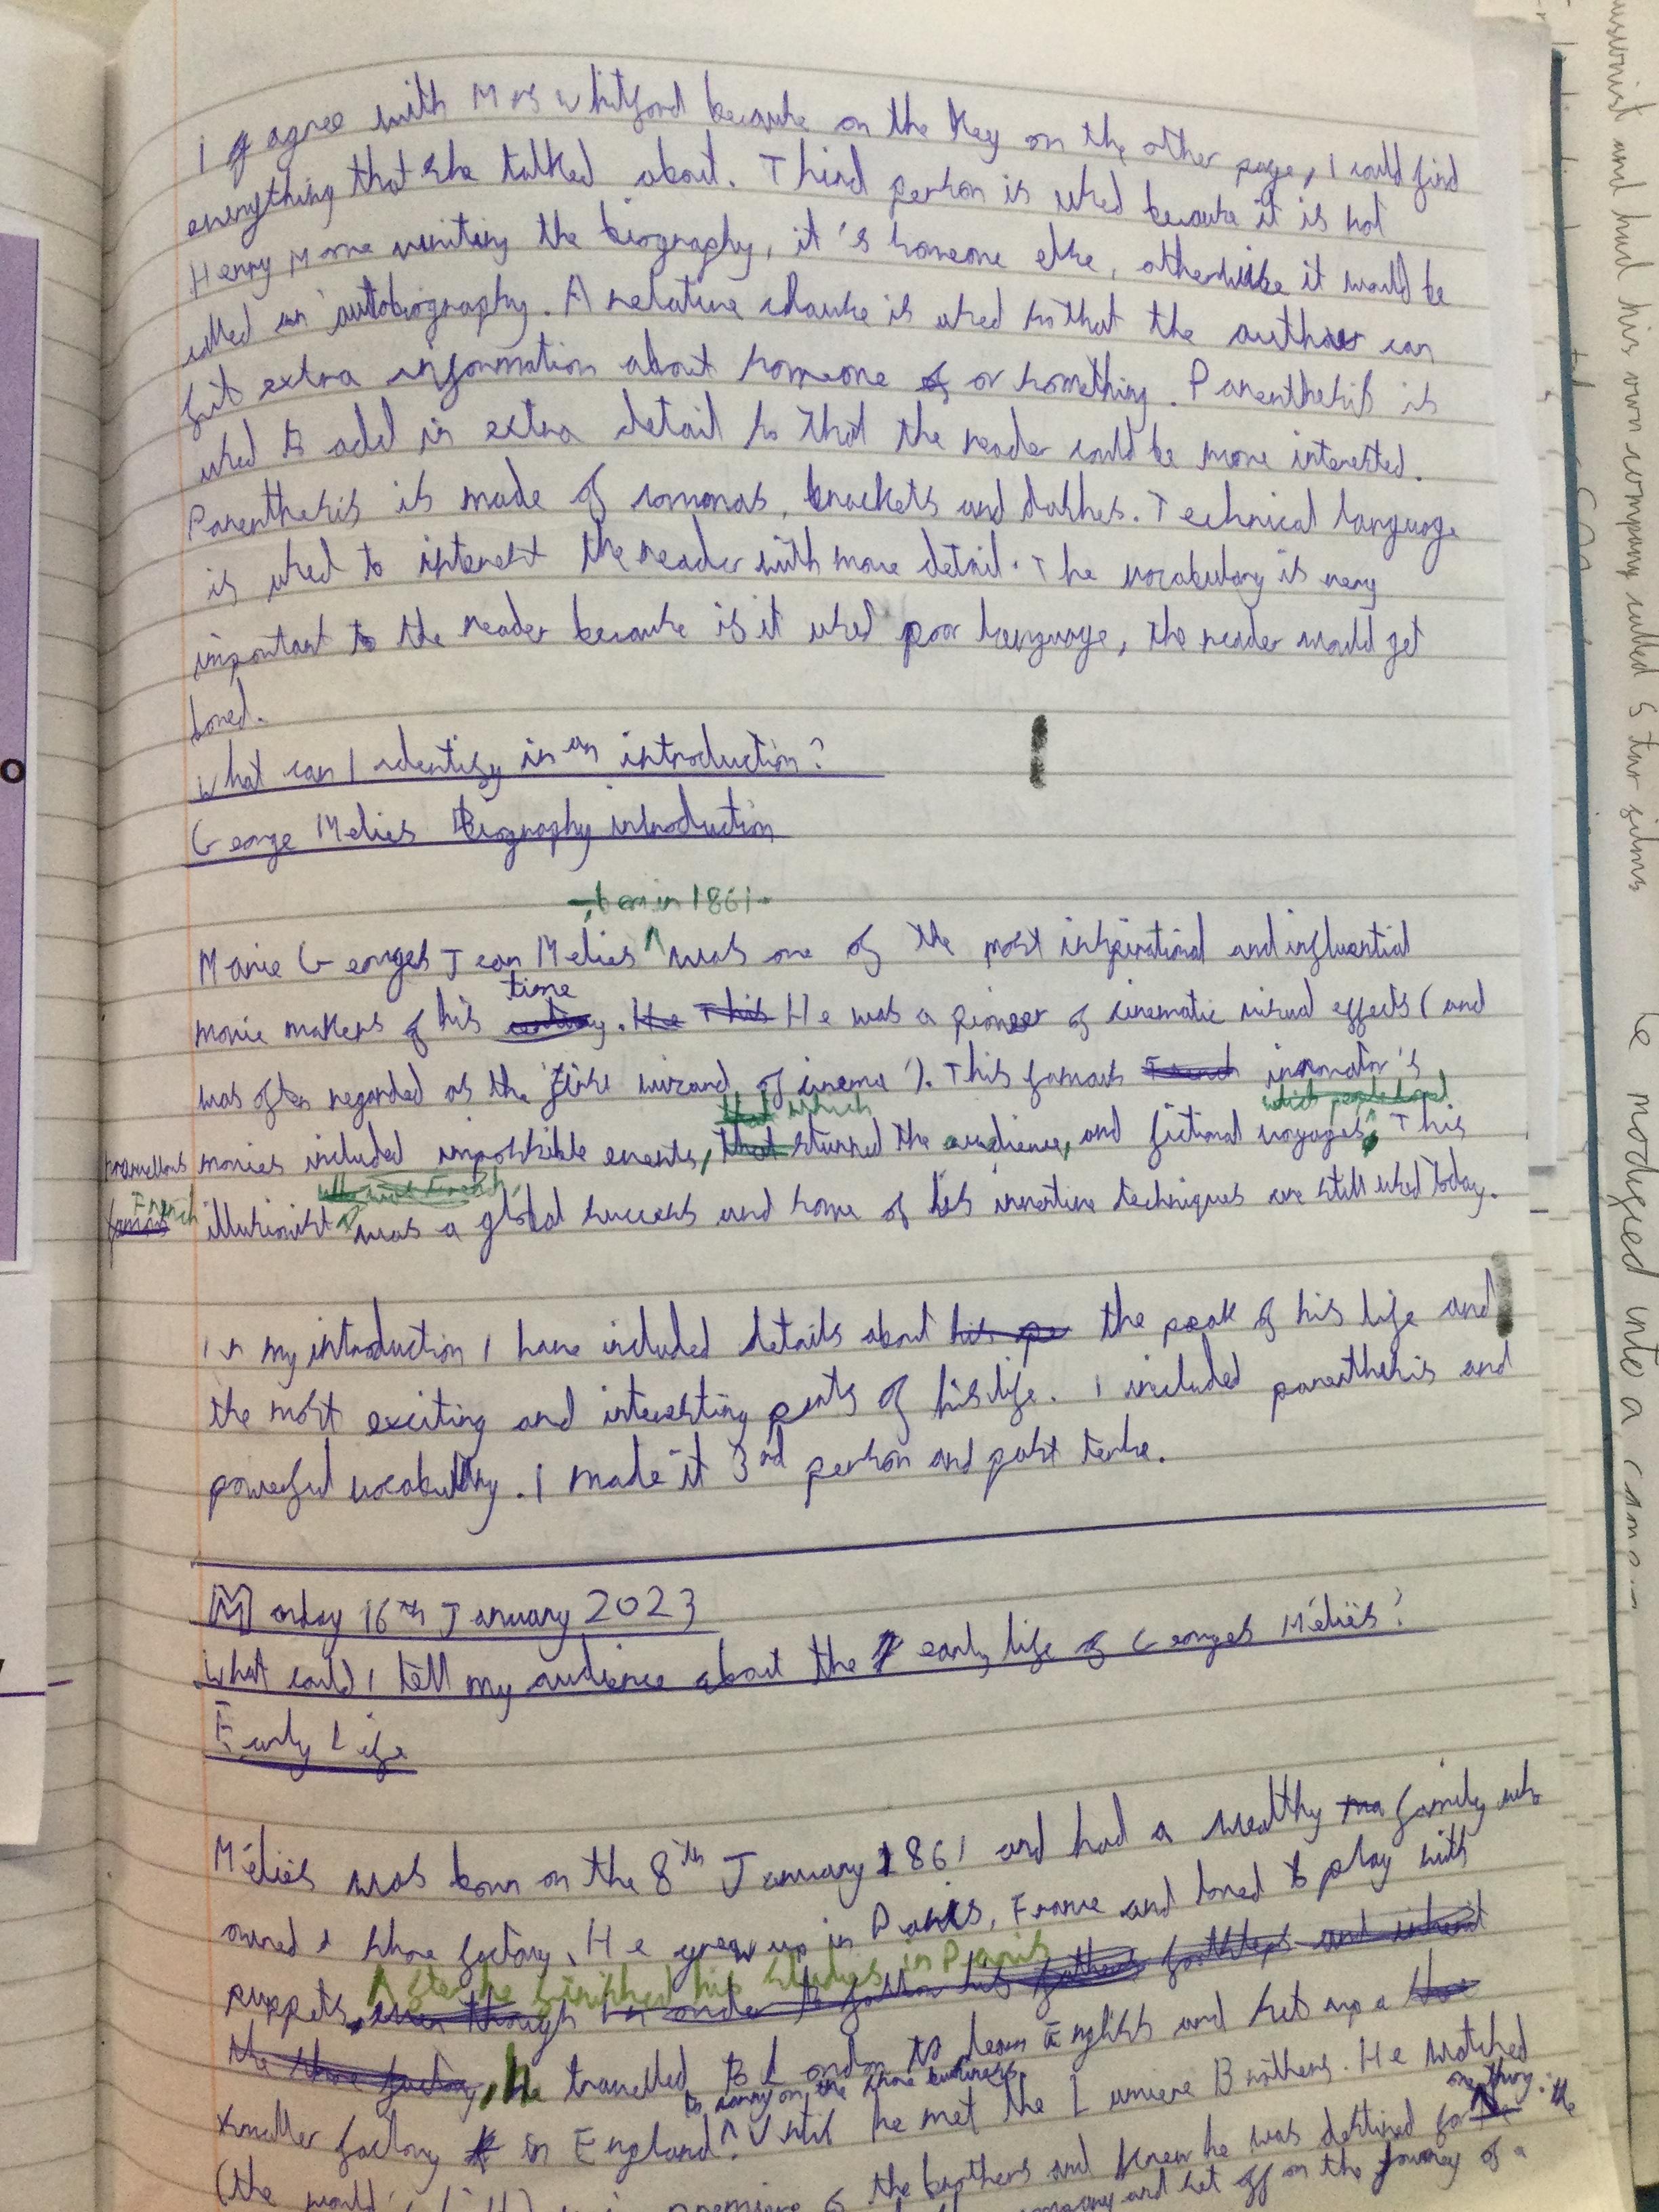 I agree with Mrs Whitford because on the key on the other page, I could find
everything that she talked about. Third person is used because it is not
Henry Morne writing the biography, it's someone else, otherwise it would be
called an autobiography. A relative clause is used so that the author can
fit extra information about someone or something. Parenthesis is
used to add in extra detail so that the reader could be more interested.
Parenthesis is made of commas, brackets and dashes. Technical language
is used to interest the reader with more detail. The vocabulary is very
important to the reader because is it used poor language, the reader would get
bored.
What can I identify in an introduction?
George Melies Biography introduction
, born in 1861
Marie Georges Jean Melies was one of the most inspirational and influential
time
movie makers of his century. He This He was a pioneer of cinematic visual effects (and
was often regarded as the 'first wizard of cinema'). This famous French innovator's
that which which people loved
movies included impossible events, that stunned the audience, and fictional voyages. This
marvellous
who was French,
French
famous illusionist was a global success and some of his inventive techniques are still used today.
In my introduction I have included details about his pe the peak of his life and
the most exciting and interesting parts of his life. I included parenthesis and
powerful vocabulary. I made it 3rd person and past tense.
Monday 16th January 2023
What could I tell my audience about the early life of Georges Méliès?
Early Life
Méliès was born on the 8th January 1861 and had a wealthy family who
owned a shoe factory. He grew up in Paris, France and loved to play with
After he finished his studies in Paris
puppets, even though in order to follow his fathers footsteps and inherit
the shoe factory, he travelled to London to learn English and set up a shoe
to carry on the shoe business
smaller factory in England. Until he met the Lumiere Brothers. He watched
one thing: the
(the world's premiere of the brothers and knew he was destined for
company and set off on the journey of a
and had his own company called Star films
modified into a